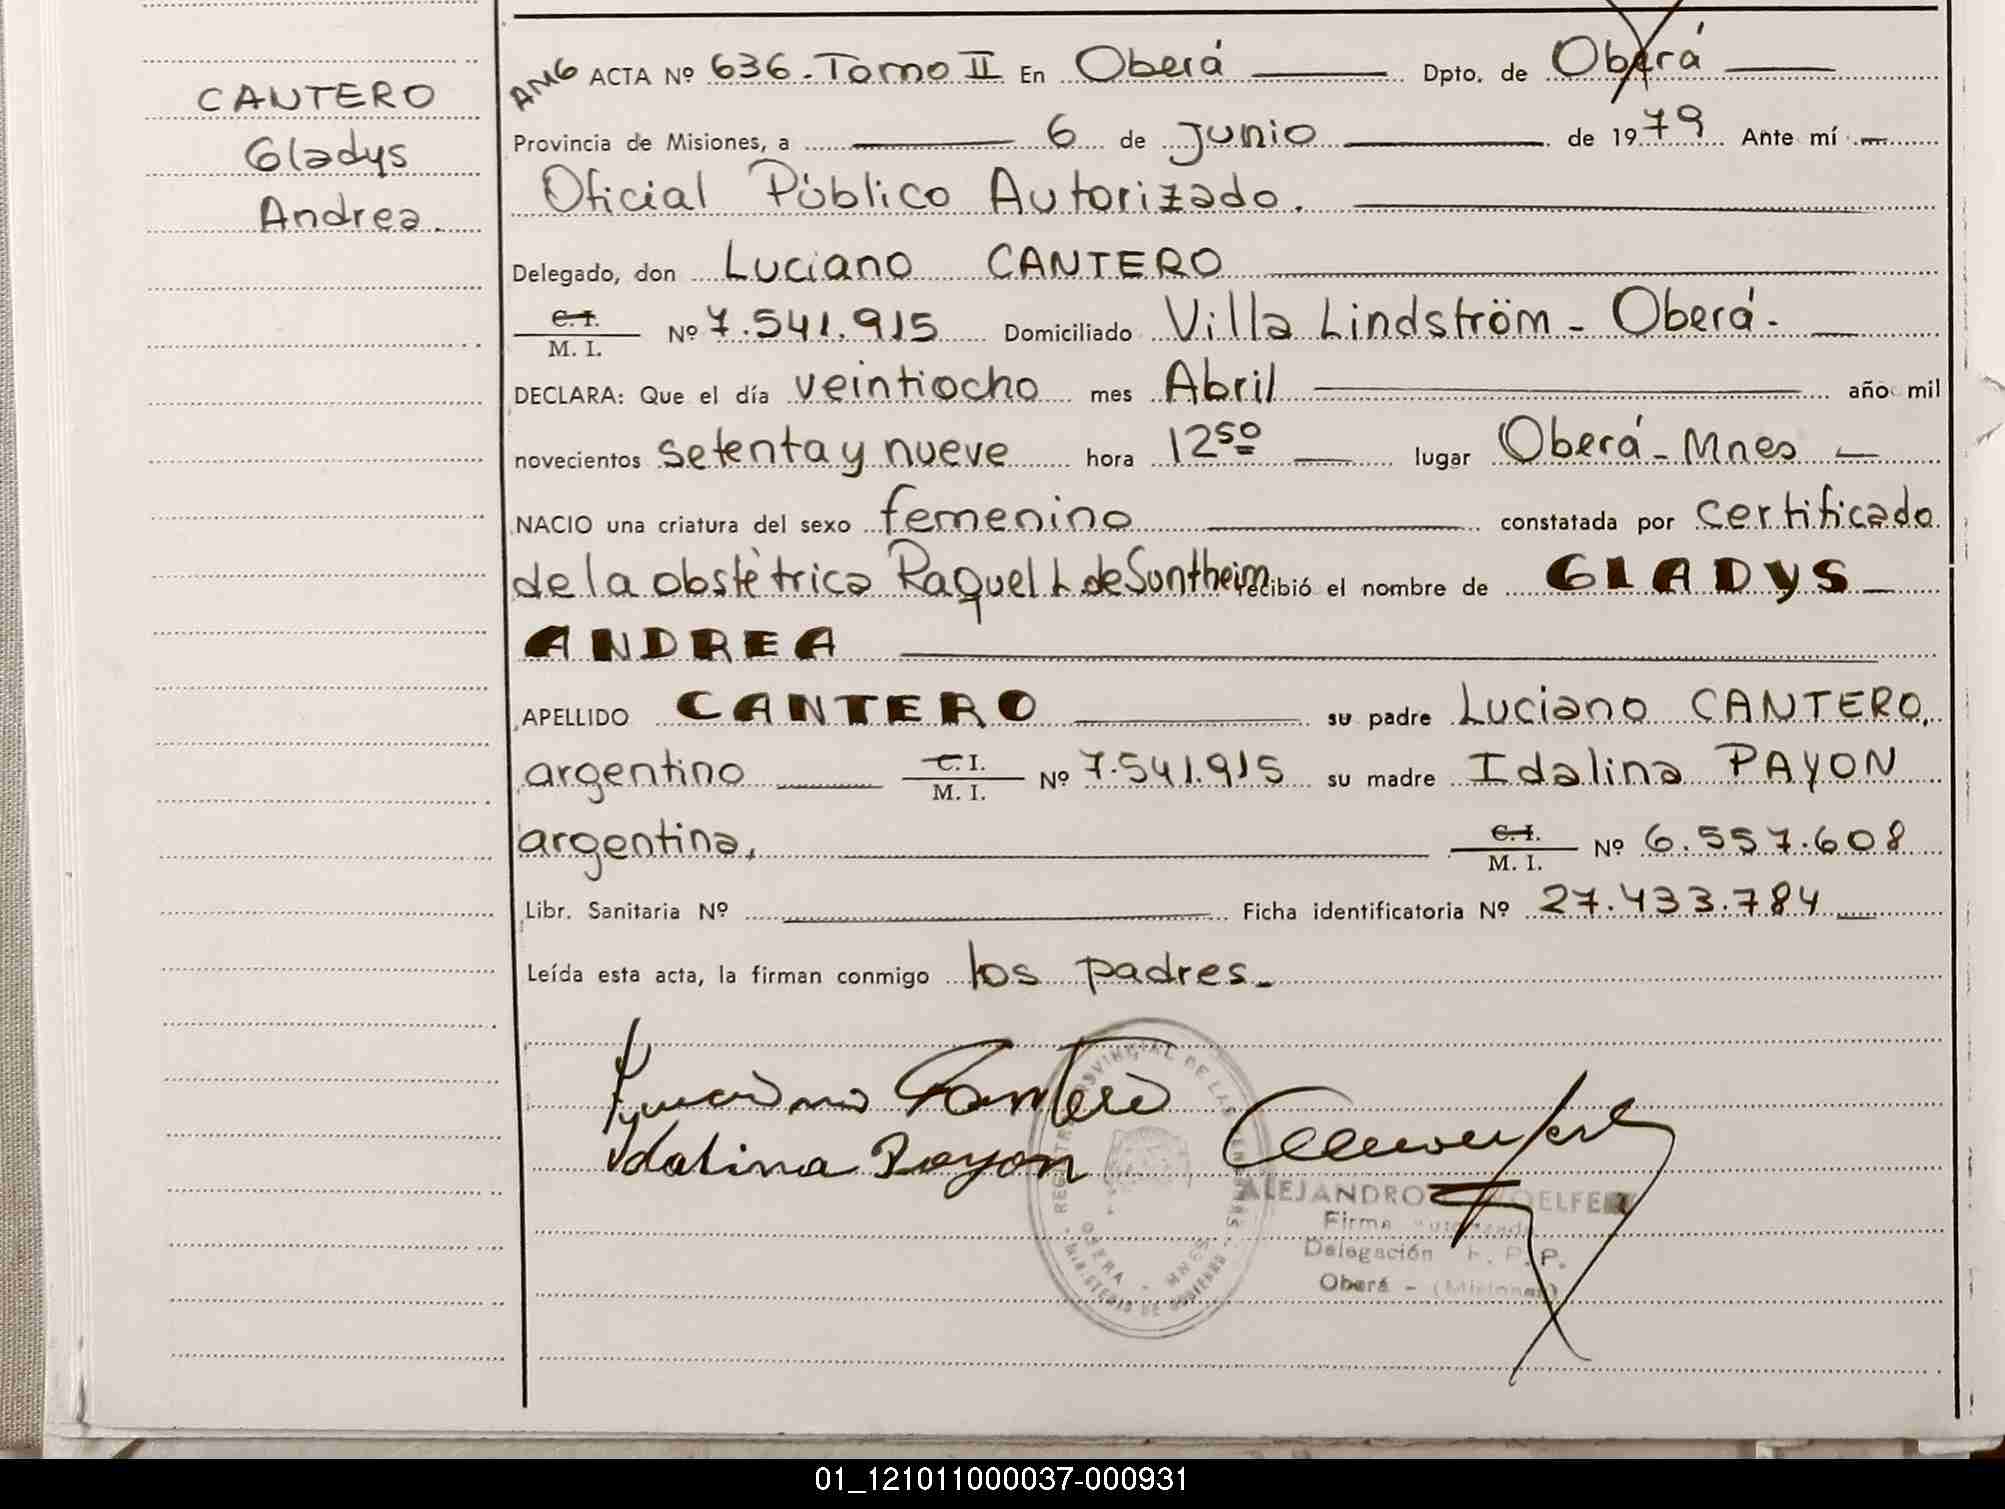 CANTERO
Gladys
Andrea.
ANG ACTA Nº 636. Tomo II En Oberá Dpto. de Oberá
Provincia de Misiones, a 6 de junio de 1979 Ante mí
Oficial Público Autorizado.
Delegado, don Luciano CANTERO
C. I. / M. I. Nº 7.541.915 Domiciliado Villa Lindström - Oberá -
DECLARA: Que el día veintiocho mes Abril año mil
novecientos setenta y nueve hora 12 50 lugar Oberá - Mnes
NACIO una criatura del sexo femenino constatada por certificado
de la obstètrica Raquel L de Suntheim recibió el nombre de GLADYS
ANDREA
APELLIDO CANTERO su padre Luciano CANTERO,
argentino C. I. / M. I. Nº 7.541.915 su madre Idalina PAYON
argentina, C. I. / M. I. Nº 6.557.608
Libr. Sanitaria Nº Ficha identificatoria Nº 27.433.784
Leída esta acta, la firman conmigo los padres.-
Luciano Cantero
Idalina Payon
REGISTRO PROVINCIAL DE LAS PERSONAS
OBERA - MNES
MINISTERIO DE GOBIERNO
ALEJANDRO
Firma Autorizada
Delegación R. P. P.
Oberá - (Misiones)
01_121011000037-000931